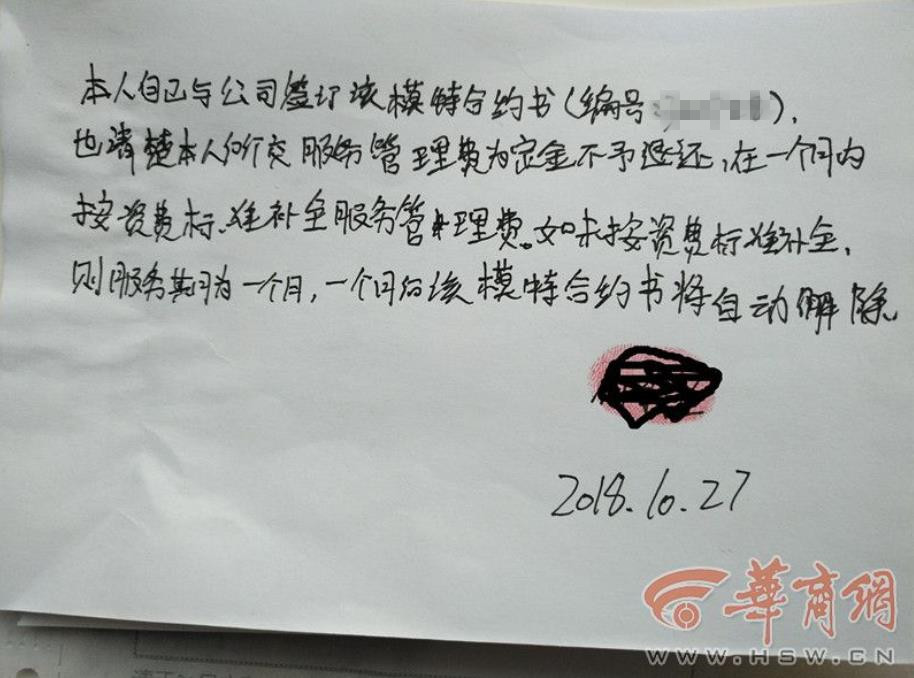 本人自己与公司签订该模特合约书(编号),
也清楚本人所交服务管理费为定金不予退还,在一个月内
按资费标准补全服务管理费。如未按资费标准补全,
则服务其月为一个月,一个月后该模特合约书将自动解除
2018.10.27
華商網
WWW.HSW.CN